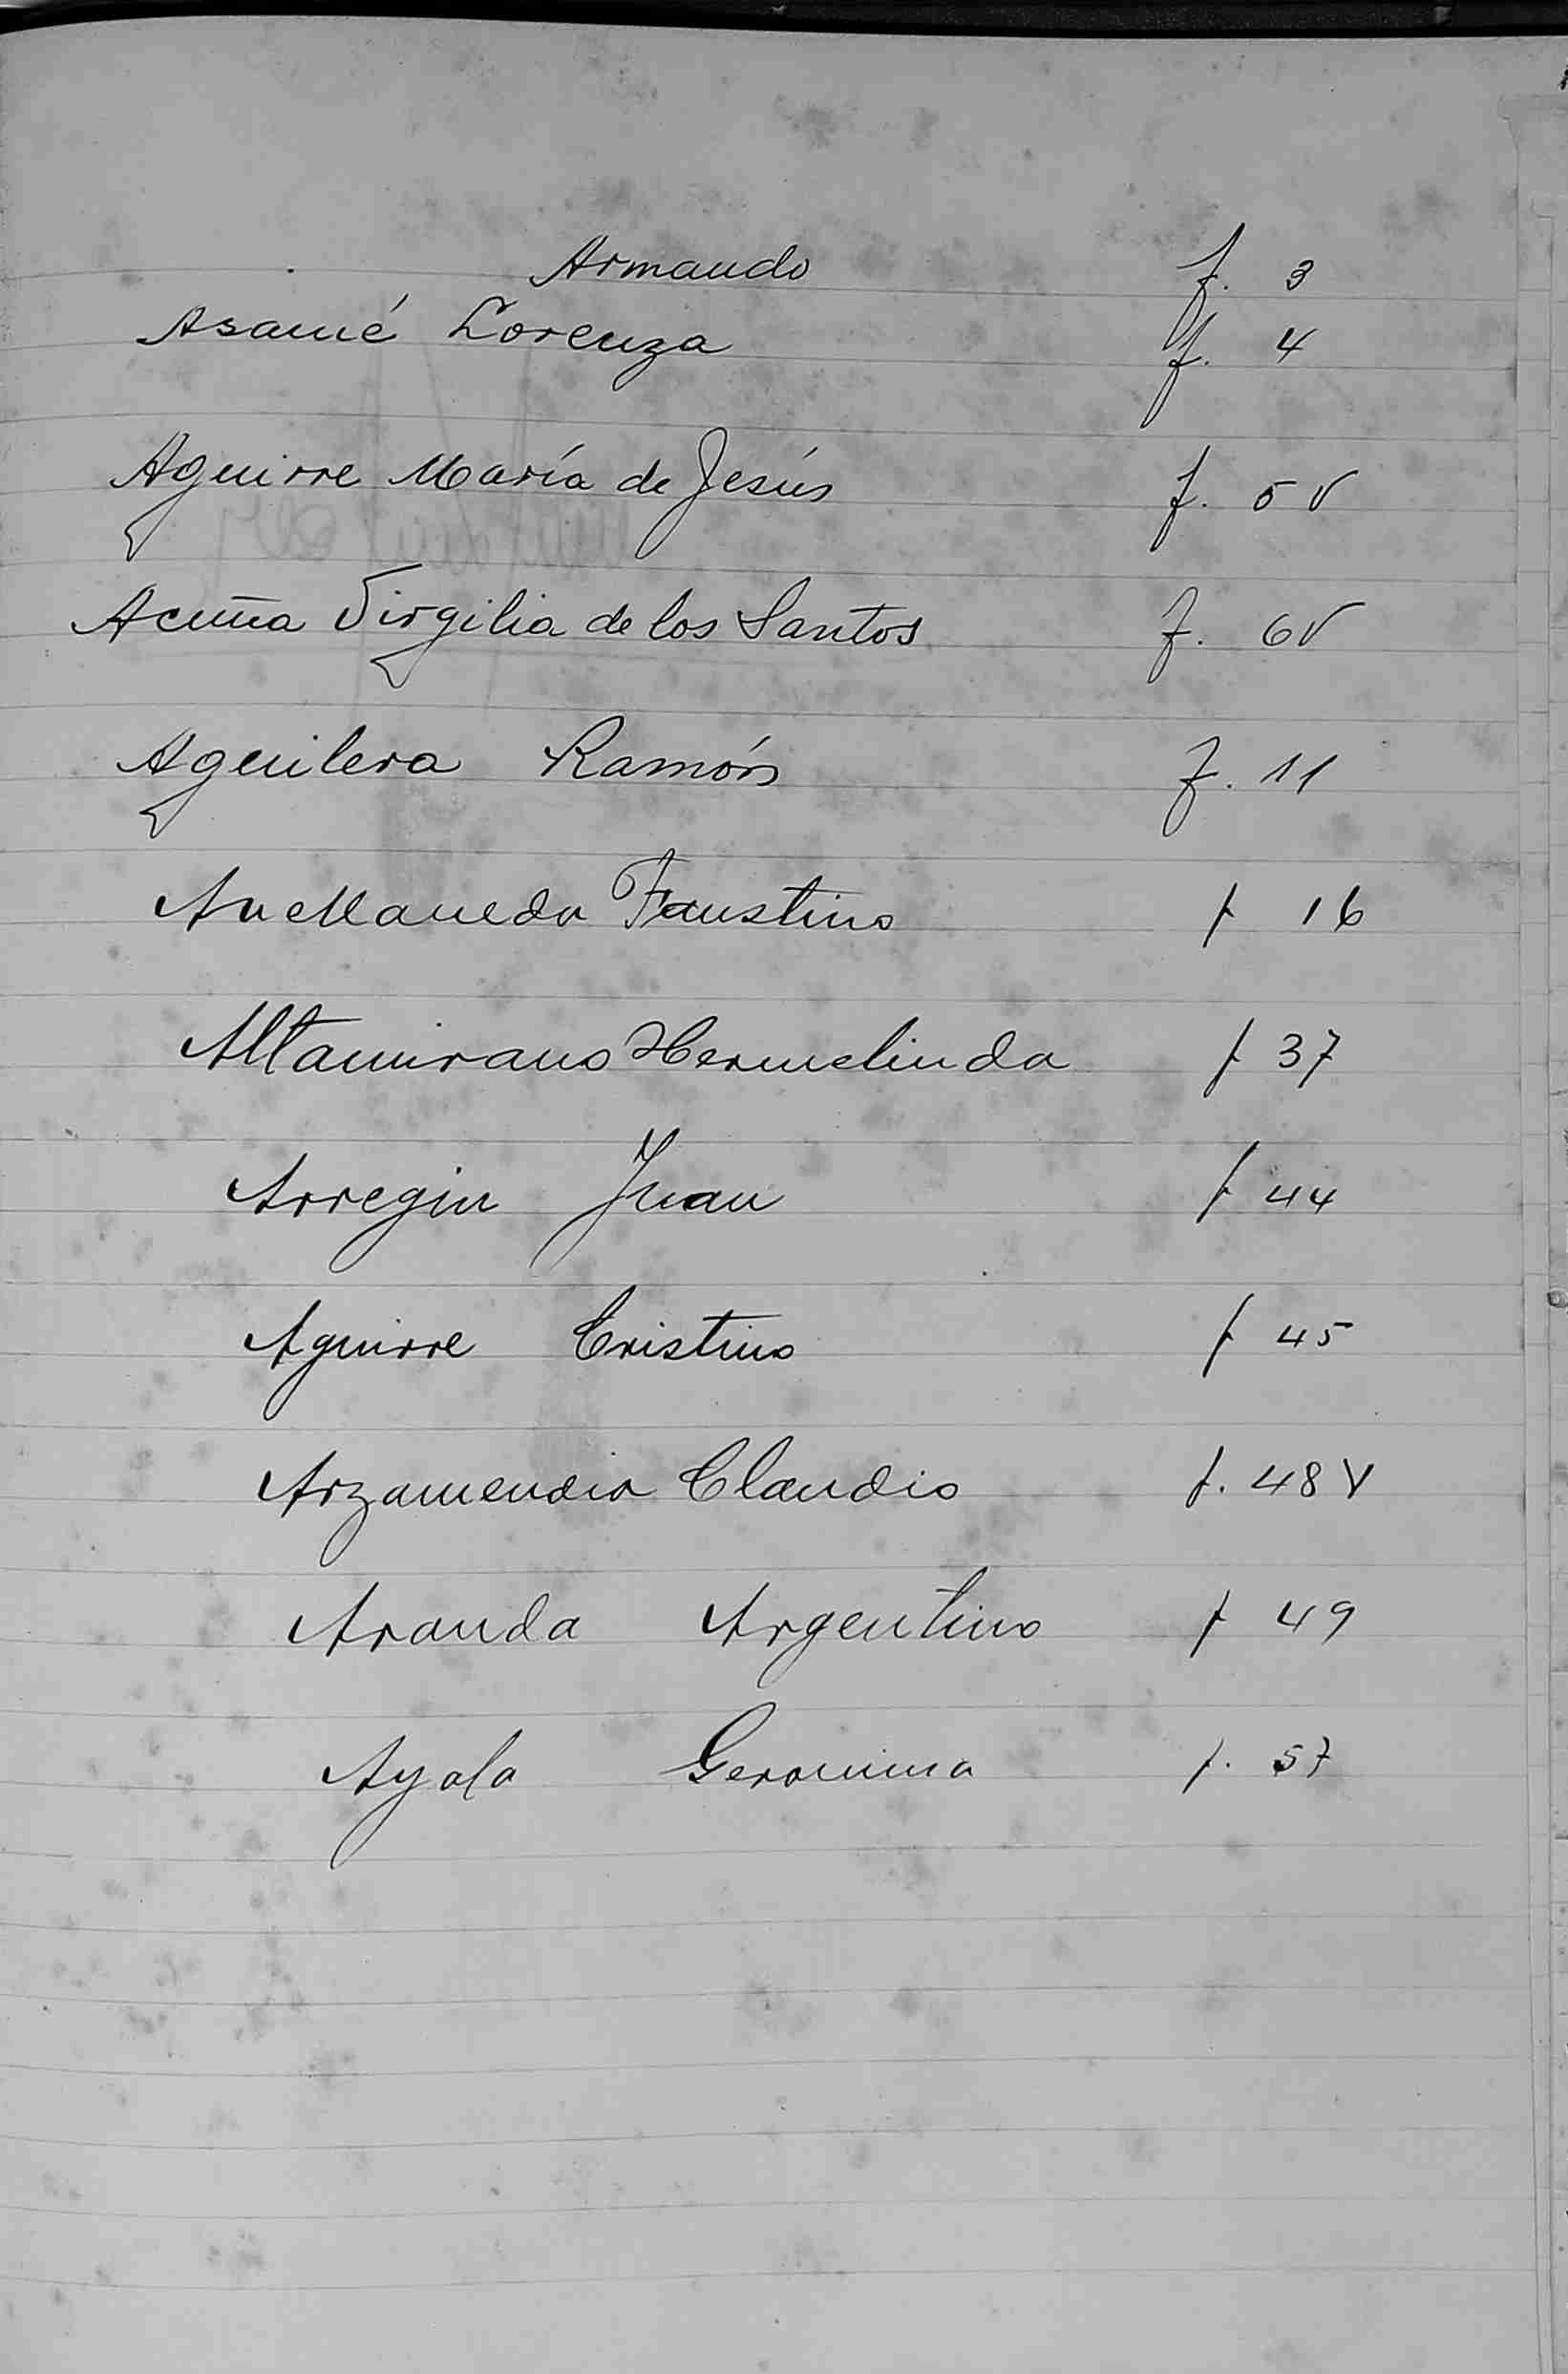 Armando f. 3
Asamé Lorenza f. 4
Aguirre María de Jesús f. 5 V
Acuña Virgilia de los Santos f. 6V
Aguilera Ramón f. 11
Avellaneda Faustino f 16
Altamirano Hermelinda f 37
Arregin Juan f 44
Aguirre Cristino f 45
Arzamendia Claudio f. 48 V
Aranda Argentino f 49
Ayala Geronima f. 57